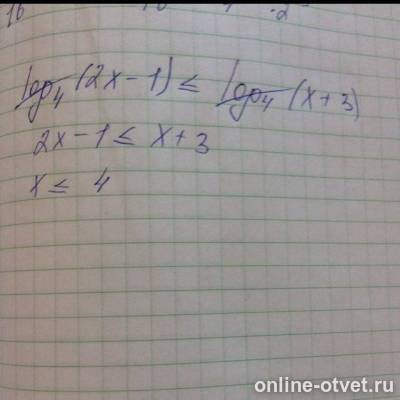 16
log₄(2x-1) ≤ log₄(x+3)
2x-1 ≤ x+3
x ≤ 4
online-otvet.ru